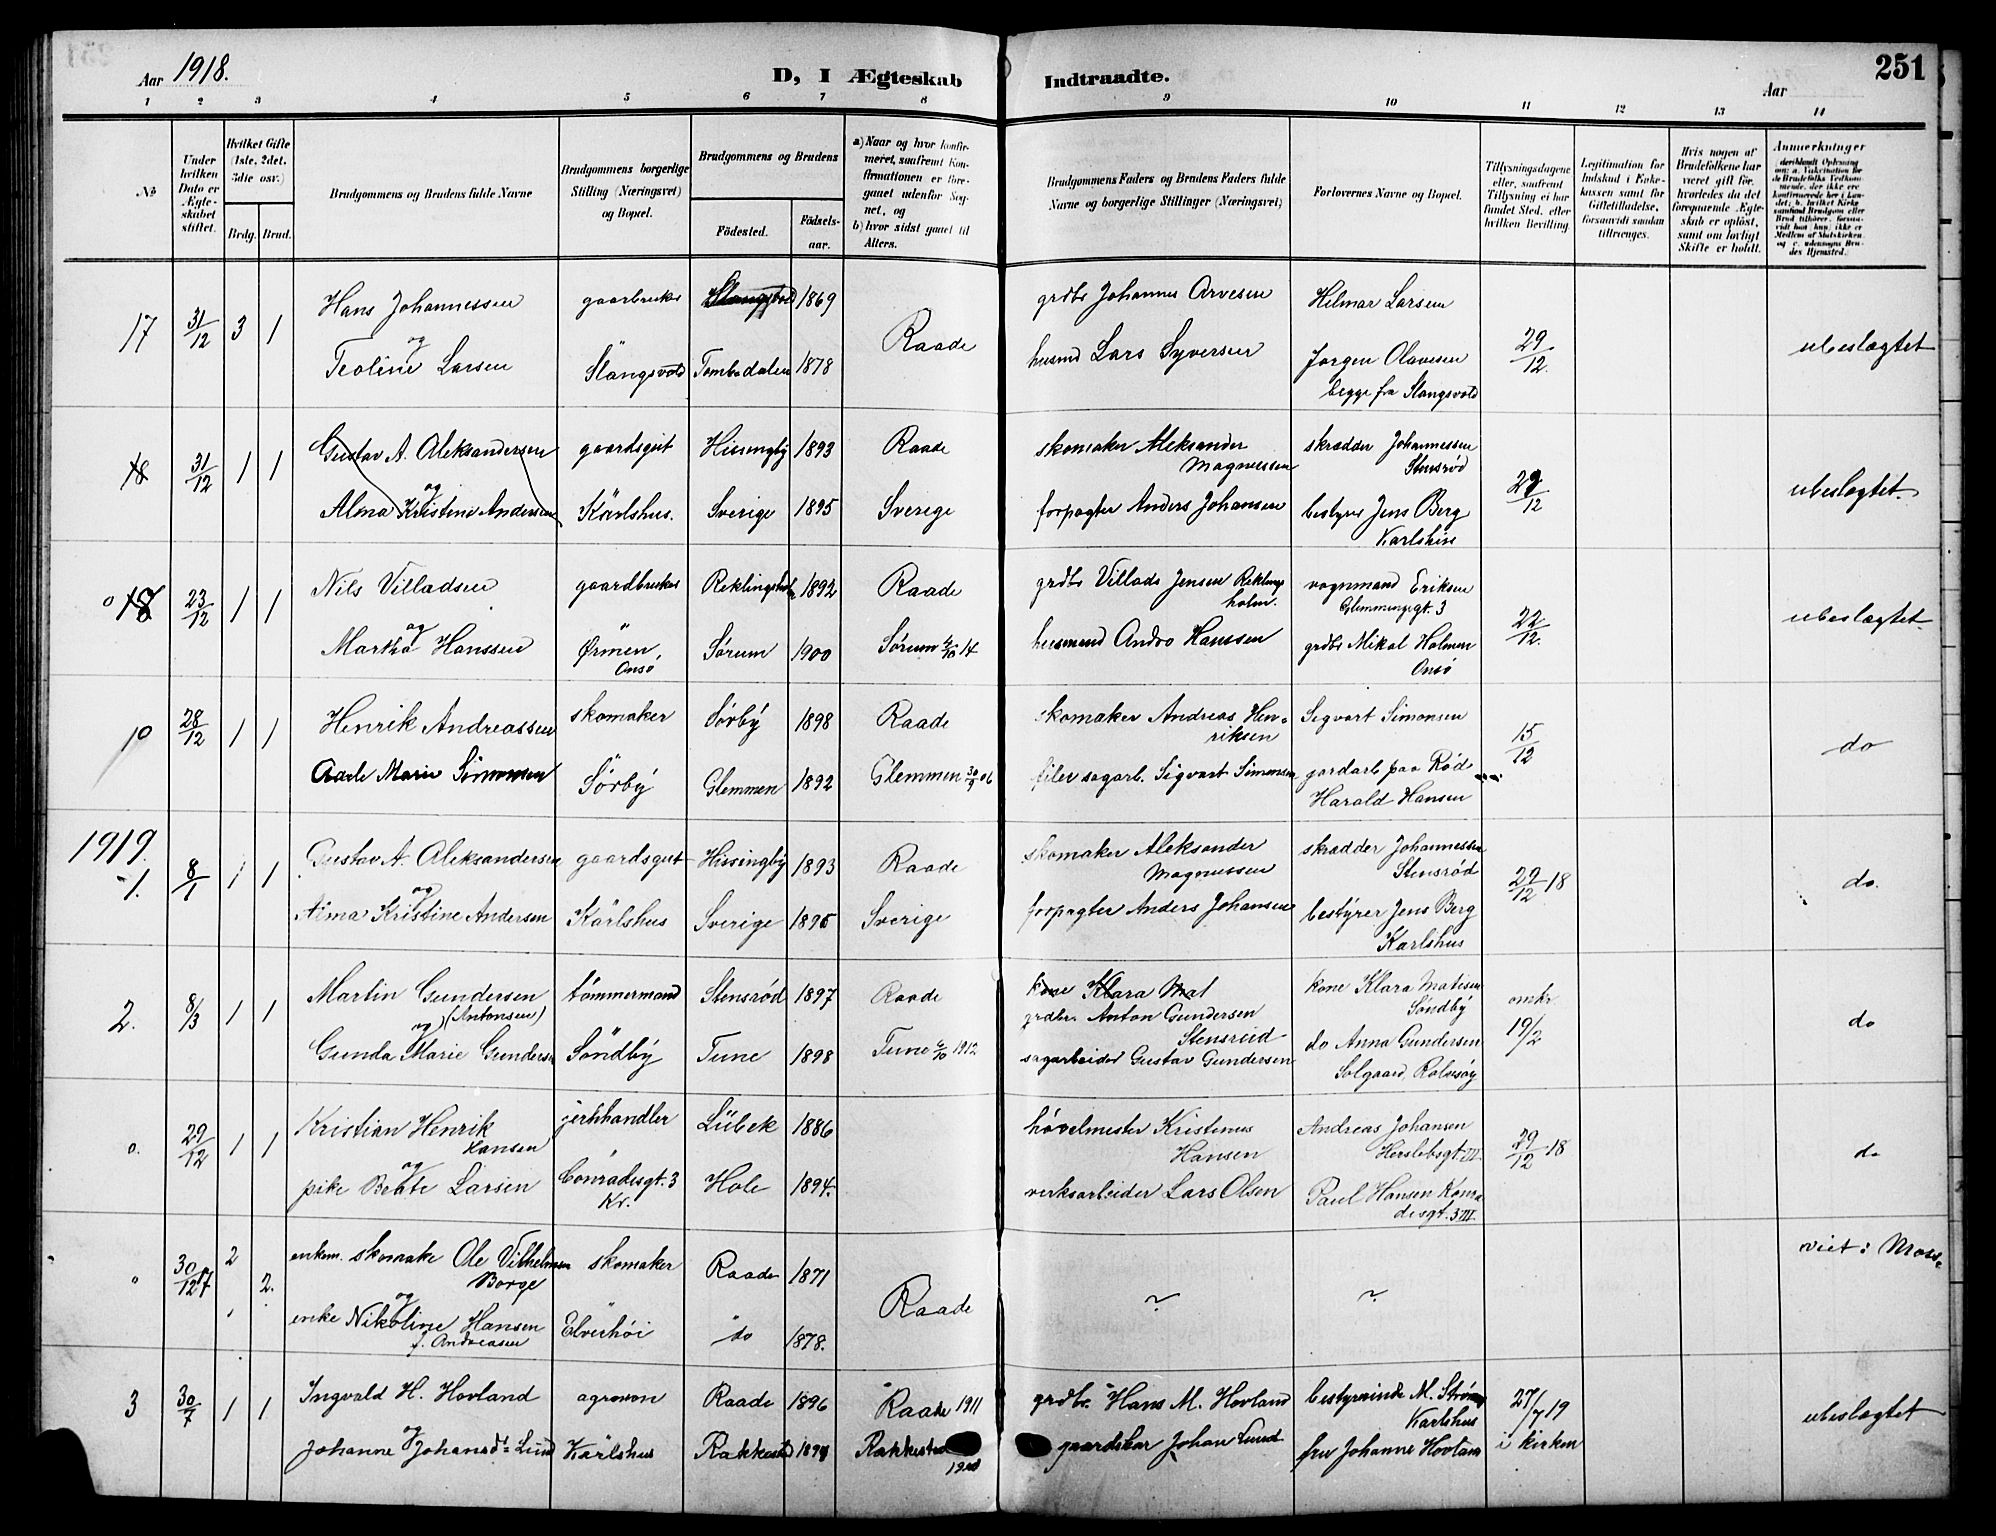 251
Aar 1918.
D, I Ægteskab Indtraadte.
Aar
1 2 3 4 5 6 7 8 9 10 11 12 13 14
No
Under hvilken Dato er Ægteskabet stiftet.
Hvilket Gifte (1ste, 2det, 3die osv.)
Brdg. Brud.
Brudgommens og Brudens fulde Navne
Brudgommens borgerlige Stilling (Næringsvei) og Bopæl.
Brudgommens og Brudens
Födested. Födselsaar.
a) Naar og hvor konfirmeret, saafremt Konfirmationen er foregaaet udenfor Sognet, og
b) hvor sidst gaaet til Alters.
Brudgommens Faders og Brudens Faders fulde Navne og borgerlige Stillinger (Næringsvei)
Forlovernes Navne og Bopæl.
Tillysningsdagene eller, saafremt Tillysning ei har fundet Sted, efter hvilken Bevilling.
Legitimation for Indskud i Enkekassen samt for Giftetilladelse, forsaavidt saadan tiltrænges.
Hvis nogen af Brudefolkene har været gift för, hvorledes da det foregaaende Ægteskab er oplöst, samt om lovligt Skifte er holdt.
Anmerkninger
17 31/12 3 1 Hans Johannessen gaarbruker 1869 grdbr Johannes Arvesen Hilmar Larsen
og Raade 29/12. ubeslægtet
Teoline Larsen Slangsvold Tombsdalen 1878 husmd Lars Syversen Jørgen Olavesen
begge fra Slangsvold
18 31/12 1 1 Gustav A. Aleksandersen gaardsgut Hissingby 1893 Raade skomaker Aleksander Magnussen skrædder Johannessen
Stensrød
og 29/12 ubeslægtet.
Alma Kristine Andersen Karlshus. Sverige 1895 Sverige forpagter Anders Johansen bestyrer Jens Berg
Karlshus
18 23/12 1 1 Nils Villadsen gaardbruker 1892 Raade grdbr Villads Jensen Reklingsholm. vognmand Eriksen
Glemmengt. 3
og 22/12. ubeslægtet.
Martha Hanssen Ørmen, Onsø Sørum 1900 Sørum 4/10 14 husmand Andro Hanssen grdbr Mikal Holmen
Onsø
19 28/12 1 1 Henrik Andreassen skomaker Sørby 1898 Raade skomaker Andreas Henriksen Sigvart Simonsen
15/12 do
Marie Simonsen Sørby Glemmen 1892 Glemmen 30/9 06 sagarb. Sigvart Simonsen gardarb paa Rød
Harald Hansen
1919.
1. 8/1 1 1 Gustav A. Aleksandersen gaardsgut Hissingby 1893 Raade skomaker Aleksander Magnussen skrædder Johannessen
Stensrød
og 29/12 18 do.
Alma Kristine Andersen Karlshus Sverige 1895 Sverige forpagter Anders Johansen bestyrer Jens Berg
Karlshus
2. 8/3 1 1 Martin Gundersen tømmermand Stensrød 1897 Raade kone Klara Mat kone Klara Matisen
(Antonsen) grdbr. Anton Gundersen Søndby
og Stensrud omkr. 19/2 do
Gunda Marie Gundersen Søndby Tune 1898 Tune 6/10 1912 sagarbeider Gustav Gundersen do Anna Gundersen
Solgaard, Rolvsøy
o. 29/12 1 1 Kristian Henrik Hansen Lübek 1886 høvelmester Kristinus Hansen Andreas Johansen
Herslebsgt.
og 29/12 18 do
pike Beate Larsen Conradisgt. 3 Kr. Hole 1894. verksarbeider Lars Olsen Paul Hansen Konradisgt. 3 III.
o 30/12 17 2 2. enkem. skomake Ole Vilhelmsen Borge skomaker Raade 1871 viet i Moss.
og Raade ~ ~
enke Nikoline Hansen f. Andreasen Elverhøi do 1878.
3 30/7 1 1 Ingvald H. Hovland agronon Raade 1896 Raade 1911 grdbr. Hans M. Hovland bestyrerinde M. Strøm
Karlshus
og 27/7 19 ubeslægtet
Johanne Johansdt. Lund Karlshus Rakkestad Rakkestad gaardskar Johan Lund fru Johanne Hovland i kirken